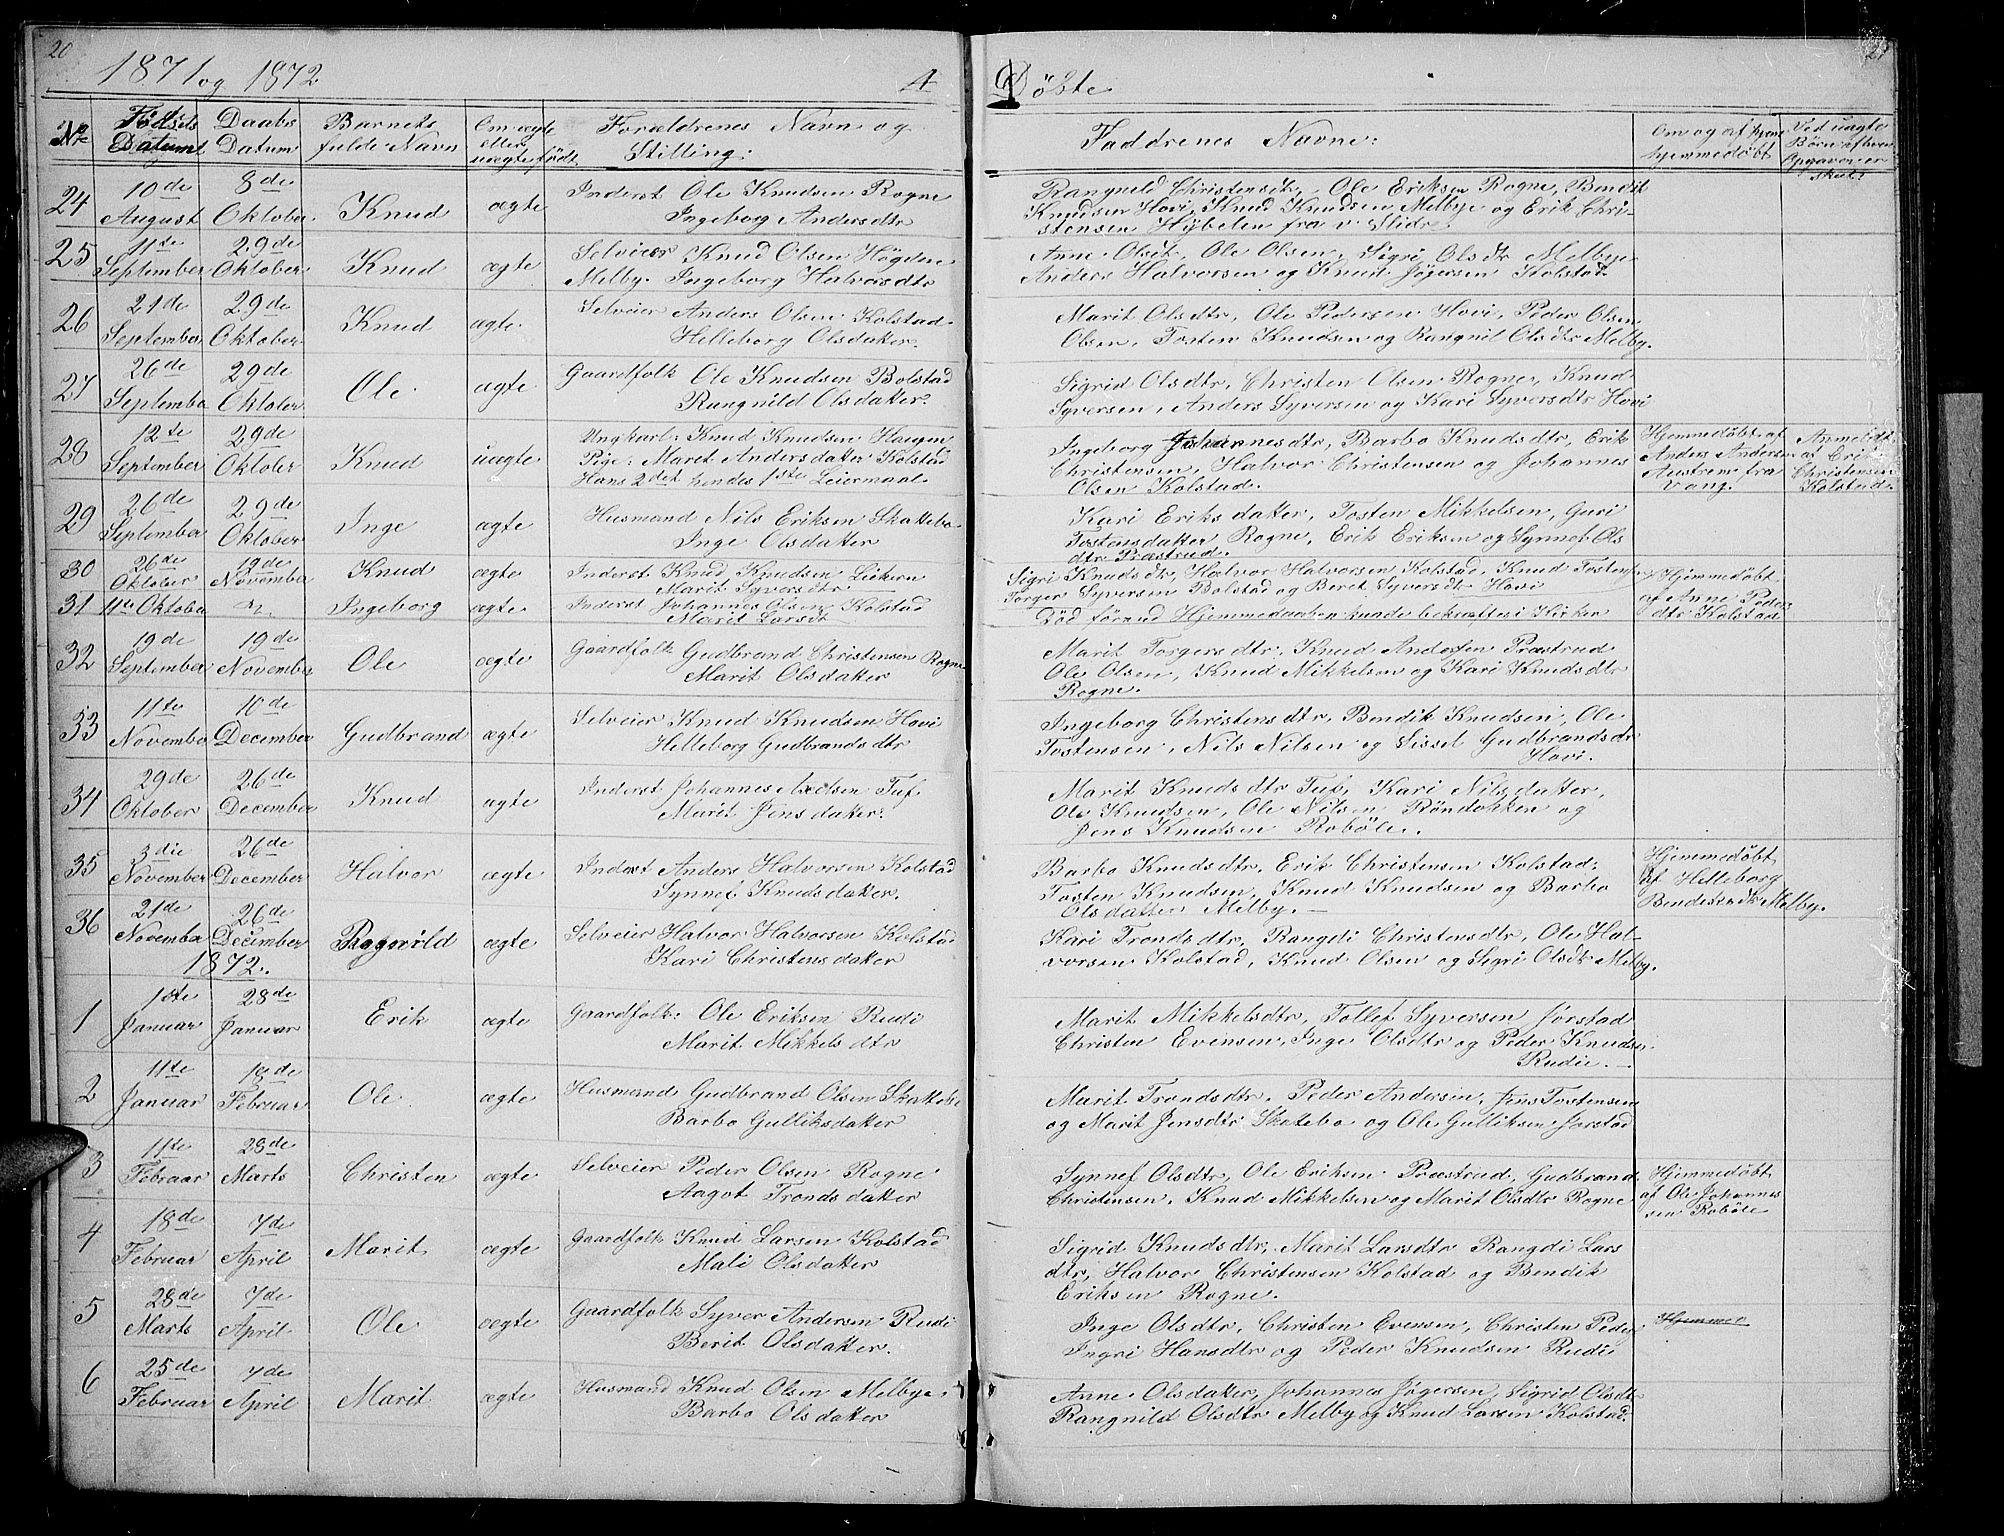 20
1871 og 1872
A
Døbte
21
No
Fødsels Datum
Daabs Datum
Barnets fulde Navn
Om ægte eller uægte født
Forældrenes Navn og Stilling:
Faddrenes Navne:
Om og af hvem hjemmedøbt
Ved uægte Børn af hvem Opgaven er skeet
24 10de August 8de Oktober Knud ægte Inderst Ole Knudsen Rogne
Ingeborg Andersdtr
Rangnild Christensdtr, Ole Eriksen Rogne, Bendik
Knudsen Hovi, Knud Knudsen Melbye og Erik Chri-
stensen Hybelen fra v. Slidre
25 11te September 29de Oktober Knud ægte Selveier Knud Olsen Høgden
Melby. Ingeborg Halvorsdtr
Anne Olsdtr, Ole Olsen, Sigri Olsdtr Melbye
Anders Halvorsen og Knud Jøgersen Kolstad
26 21de September 29de Oktober Knud ægte Selveier Anders Olsen Kolstad
Helleborg Olsdatter.
Marit Olsdtr, Ole Pedersen Hovi, Peder Olsen
Olsen, Tosten Knudsen og Rangnil Olsdtr Melby.
27 26de September 29de Oktober Ole ægte Gaardfolk Ole Knudsen Bolstad
Rangnild Olsdatter
Sigrid Olsdtr, Christen Olsen Rogne, Knud
Syversen, Anders Syversen og Kari Syversdtr Hovi
28 12te September 29de Oktober Knud uægte Ungkarl: Knud Knudsen Haugen
Pige: Marit Andersdatter Kolstad
Hans 2det hendes 1ste Leiermaal.
Ingeborg Johannesdtr, Barbo Knudsdtr, Erik
Christensen, Halvor Christensen og Johannes
Olsen Kolstad.
Hjemmedøbt af
Anders Andersen
Austrem fra
Vang.
Anmeldt
af Erik
Christensen
Kolstad.
29 26de September 29de Oktober Inge ægte Husmand Nils Eriksen Skattebo
Inge Olsdatter
Kari Eriksdatter, Tosten Mikkelsen, Guri
Tostensdatter Rogne, Erik Eriksen og Synnef Ols
dtr Præstrud.
30 26de Oktober 19de November Knud ægte Inderst Knud Knudsen
Marit Syversdtr
Sigri Knudsdtr, Halvor Halvorsen Kolstad, Knud Tostens
Torger Syversen Bolstad og Beret Syversdtr Hovi
31 11te Oktober Ingeborg ægte Inderst Johannes Olsen Kolstad
Marit Larsdtr
Død førend Hjemmedaaben kunde bekræftes i Kirken
Hjemmedøbt
af Anne Peders
dtr Kolstad
32 19de September 19de November Ole ægte Gaardfolk Gudbrand Christensen Rogne
Marit Olsdatter
Marit Torgersdtr, Knud Andersen Præstrud
Ole Olsen, Knud Mikkelsen og Kari Knudsdtr
Rogne.
33 11te November 10de December Gudbrand ægte Selveier Knud Knudsen Hovi
Helleborg Gudbrandsdtr
Ingeborg Christensdtr, Bendik Knudsen, Ole
Tostensen, Nils Nilsen og Sissel Gudbrandsdtr
Hovi.
34 29de Oktober 26de December Knud ægte Inderst Johannes Axelsen Tuf
Marit Jensdatter.
Marit Knudsdtr Tuf, Kari Nilsdatter,
Ole Knudsen, Ole Nilsen Røndokken og
Jens Knudsen Robøle.
35 3die November 26de December Halvor ægte Inderst Anders Halvorsen Kolstad
Synnef Knudsdatter.
Barbo Knudsdtr, Erik Christensen Kolstad,
Tosten Knudsen, Knud Knudsen og Barbo
Olsdatter Melby.
Hjemmedøbt
af Helleborg
Bendiksdtr Melby.
36 21de November 26de December Ragnild ægte Selveier Halvor Halvorsen Kolstad
Kari Christensdatter
Kari Trondsdtr, Rangdi Christensdtr, Ole Hal-
vorsen Kolstad, Knud Olsen og Sigri Olsdtr Melby.
1872.
1 1ste Januar 28de Januar Erik ægte Gaardfolk: Ole Eriksen Rudi
Marit Mikkelsdtr
Marit Mikkelsdtr, Tollef Syversen Jorstad
Christen Evensen, Inge Olsdtr og Peder Knudsen
Rudie.
2 11te Januar 18de Februar Ole ægte Husmand Gudbrand Olsen Skattebo
Barbo Gulliksdatter
Marit Trondsdtr, Peder Andersen, Jens Tostensen
og Marit Jensdtr Skatebo og Ole Gulliksen Jorstad
3 11te Februar 28de Marts Christen ægte Selveier Peder Olsen Rogne
Aagot Trondsdatter
Synnef Olsdtr, Ole Eriksen Præstrud, Gudbrand
Christensen, Knud Mikkelsen og Marit Olsdtr Rogne
Hjemmedøbt
af Ole Johannes
sen Robøle
4 18de Februar 7de April Marit ægte Gaardfolk Knud Larsen Kolstad
Mali Olsdatter
Sigrid Knudsdtr, Marit Larsdtr Rangdi Lars
dtr, Halvor Christensen Kolstad og Bendik
Eriksen Rogne.
5 28de Marts 7de April Ole ægte Gaardfolk Syver Andersen Rudi
Berit Olsdatter.
Inge Olsdtr, Christen Evensen, Christen Peder
Ingri Hansdtr og Peder Knudsen Rudi
Hjemme
6 25de Februar 7de April Marit ægte Husmand Knud Olsen Melbye
Barbo Olsdatter
Anne Olsdatter, Johannes Jøgersen, Sigrid Olsdtr
Rangnild Olsdtr Melby og Knud Larsen Kolstad.